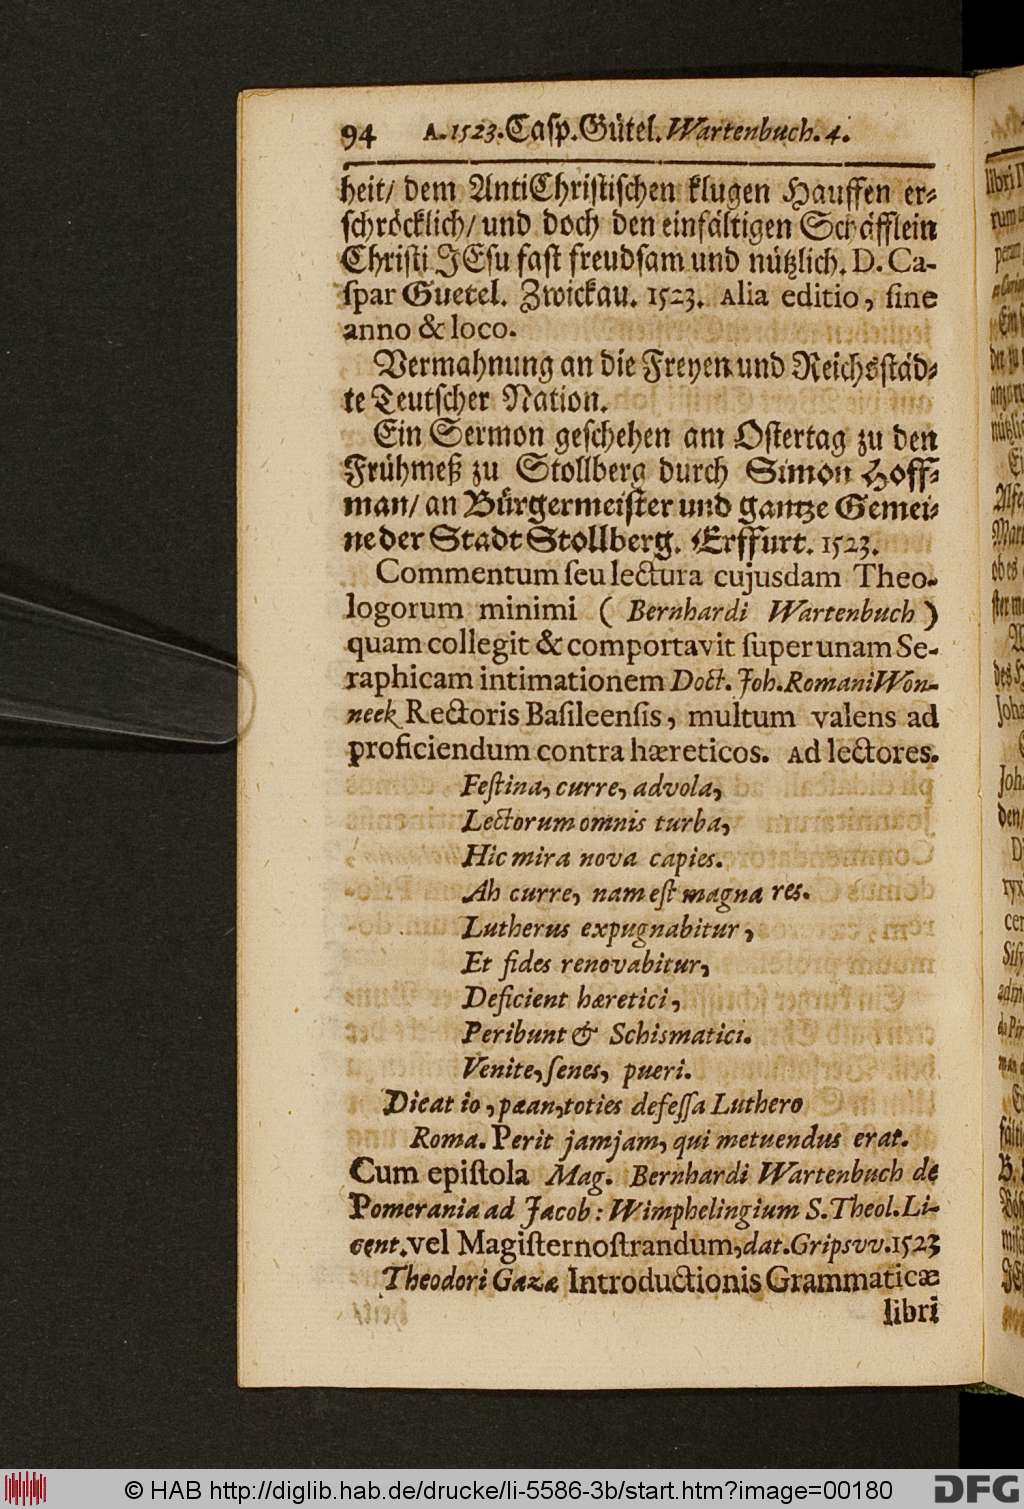 94 A. 1523. Casp. Gütel. Wartenbuch. 4.
heit/ dem AntiChristischen klugen Hauffen er⸗
schröcklich/ und doch den einfältigen Schäfflein
Christi JEsu fast freudsam und nützlich. D. Ca-
spar Guetel. Zwickau. 1523. Alia editio, sine
anno & loco.
Vermahnung an die Freyen und Reichsstäd⸗
te Teutscher Nation.
Ein Sermon geschehen am Ostertag zu den
Frühmeß zu Stollberg durch Simon Hoff⸗
man/ an Bürgermeister und gantze Gemei⸗
ne der Stadt Stollberg. Erffurt. 1523.
Commentum seu lectura cujusdam Theo-
logorum minimi ( Bernhardi Wartenbuch )
quam collegit & comportavit super unam Se-
raphicam intimationem Doct. Joh. Romani Won-
neek Rectoris Basileensis, multum valens ad
proficiendum contra hæreticos. Ad lectores.
Festina, curre, advola,
Lectorum omnis turba,
Hic mira nova capies.
Ah curre, nam est magna res.
Lutherus expugnabitur,
Et fides renovabitur,
Deficient hæretici,
Peribunt & Schismatici.
Venite, senes, pueri.
Dicat io, pæan, toties defessa Luthero
Roma. Perit jamjam, qui metuendus erat.
Cum epistola Mag. Bernhardi Wartenbuch de
Pomerania ad Jacob: Wimphelingium S. Theol. Li-
cent. vel Magisternostrandum, dat. Gripsvv. 1523
Theodori Gazæ Introductionis Grammaticæ
libri
© HAB http://diglib.hab.de/drucke/li-5586-3b/start.htm?image=00180
DFG